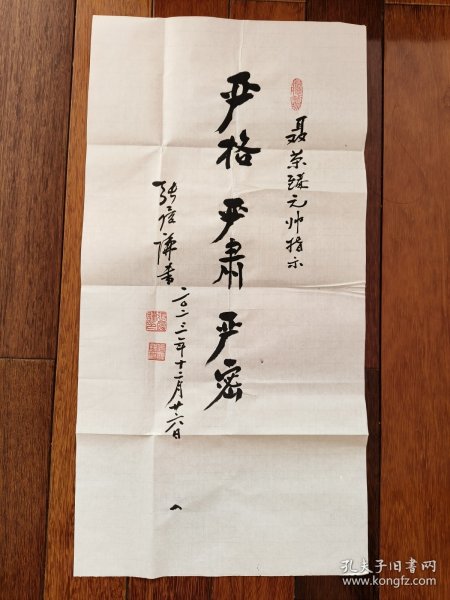 聂荣臻元帅指示
严格 严肃 严密
张履谦书
二〇二三年十二月廿六日
孔夫子旧书网
www.kongfz.com